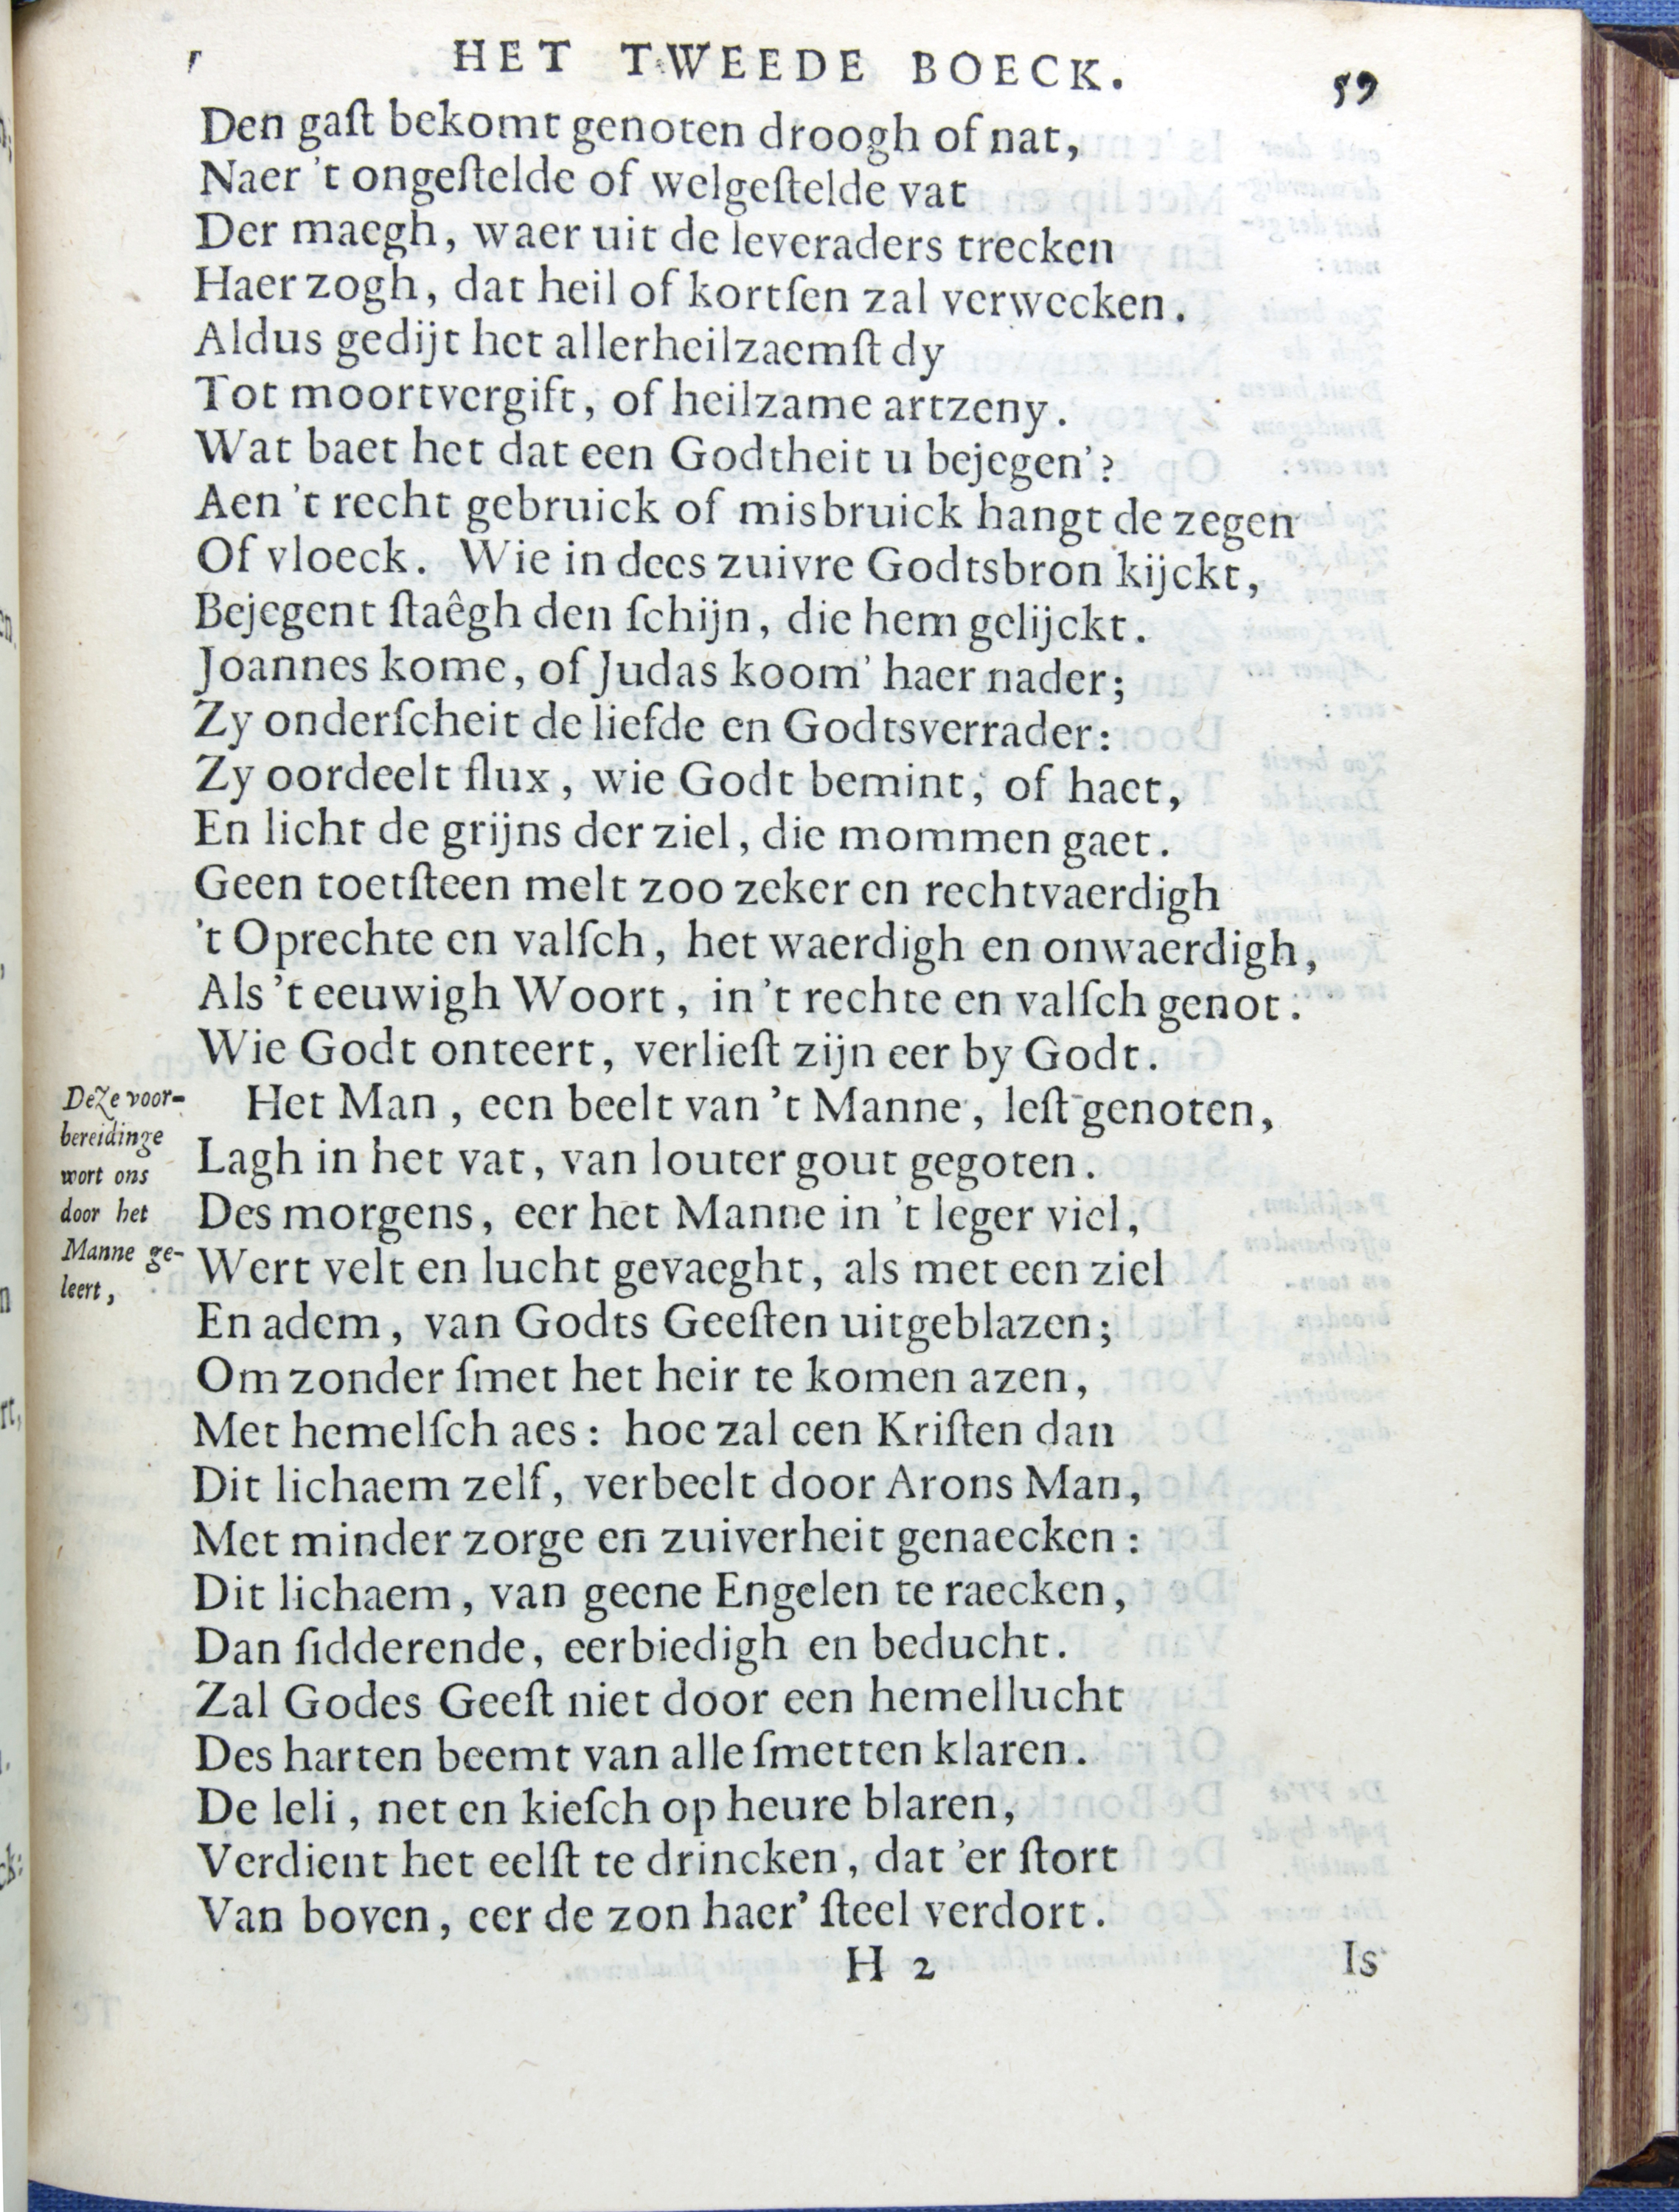 HET TWEEDE BOECK. 59
Den gaſt bekomt genoten droogh of nat,
Naer 't ongeſtelde of welgeſtelde vat
Der maegh, waer uit de leveraders trecken
Haer zogh, dat heil of kortſen zal verwecken.
Aldus gedijt het allerheilzaemſt dy
Tot moortvergift, of heilzame artzeny.
Wat baet het dat een Godtheit u bejegen'?
Aen 't recht gebruick of misbruick hangt de zegen
Of vloeck. Wie in dees zuivre Godtsbron kijckt,
Bejegent ſtaêgh den ſchijn, die hem gelijckt.
Joannes kome, of Judas koom' haer nader;
Zy onderſcheit de liefde en Godtsverrader:
Zy oordeelt flux, wie Godt bemint, of haet,
En licht de grijns der ziel, die mommen gaet.
Geen toetſteen melt zoo zeker en rechtvaerdigh
't Oprechte en valſch, het waerdigh en onwaerdigh,
Als 't eeuwigh Woort, in 't rechte en valſch genot.
Wie Godt onteert, verlieſt zijn eer by Godt.
Deze voor-
bereidinge
wort ons
door het
Manne ge-
leert,
Het Man, een beelt van 't Manne, leſt genoten,
Lagh in het vat, van louter gout gegoten.
Des morgens, eer het Manne in 't leger viel,
Wert velt en lucht gevaeght, als met een ziel
En adem, van Godts Geeſten uitgeblazen;
Om zonder ſmet het heir te komen azen,
Met hemelſch aes: hoe zal een Kriſten dan
Dit lichaem zelf, verbeelt door Arons Man,
Met minder zorge en zuiverheit genaecken:
Dit lichaem, van geene Engelen te raecken,
Dan ſidderende, eerbiedigh en beducht.
Zal Godes Geeſt niet door een hemellucht
Des harten beemt van alle ſmetten klaren.
De leli, net en kieſch op heure blaren,
Verdient het eelſt te drincken, dat 'er ſtort
Van boven, eer de zon haer' ſteel verdort.
H 2 Is